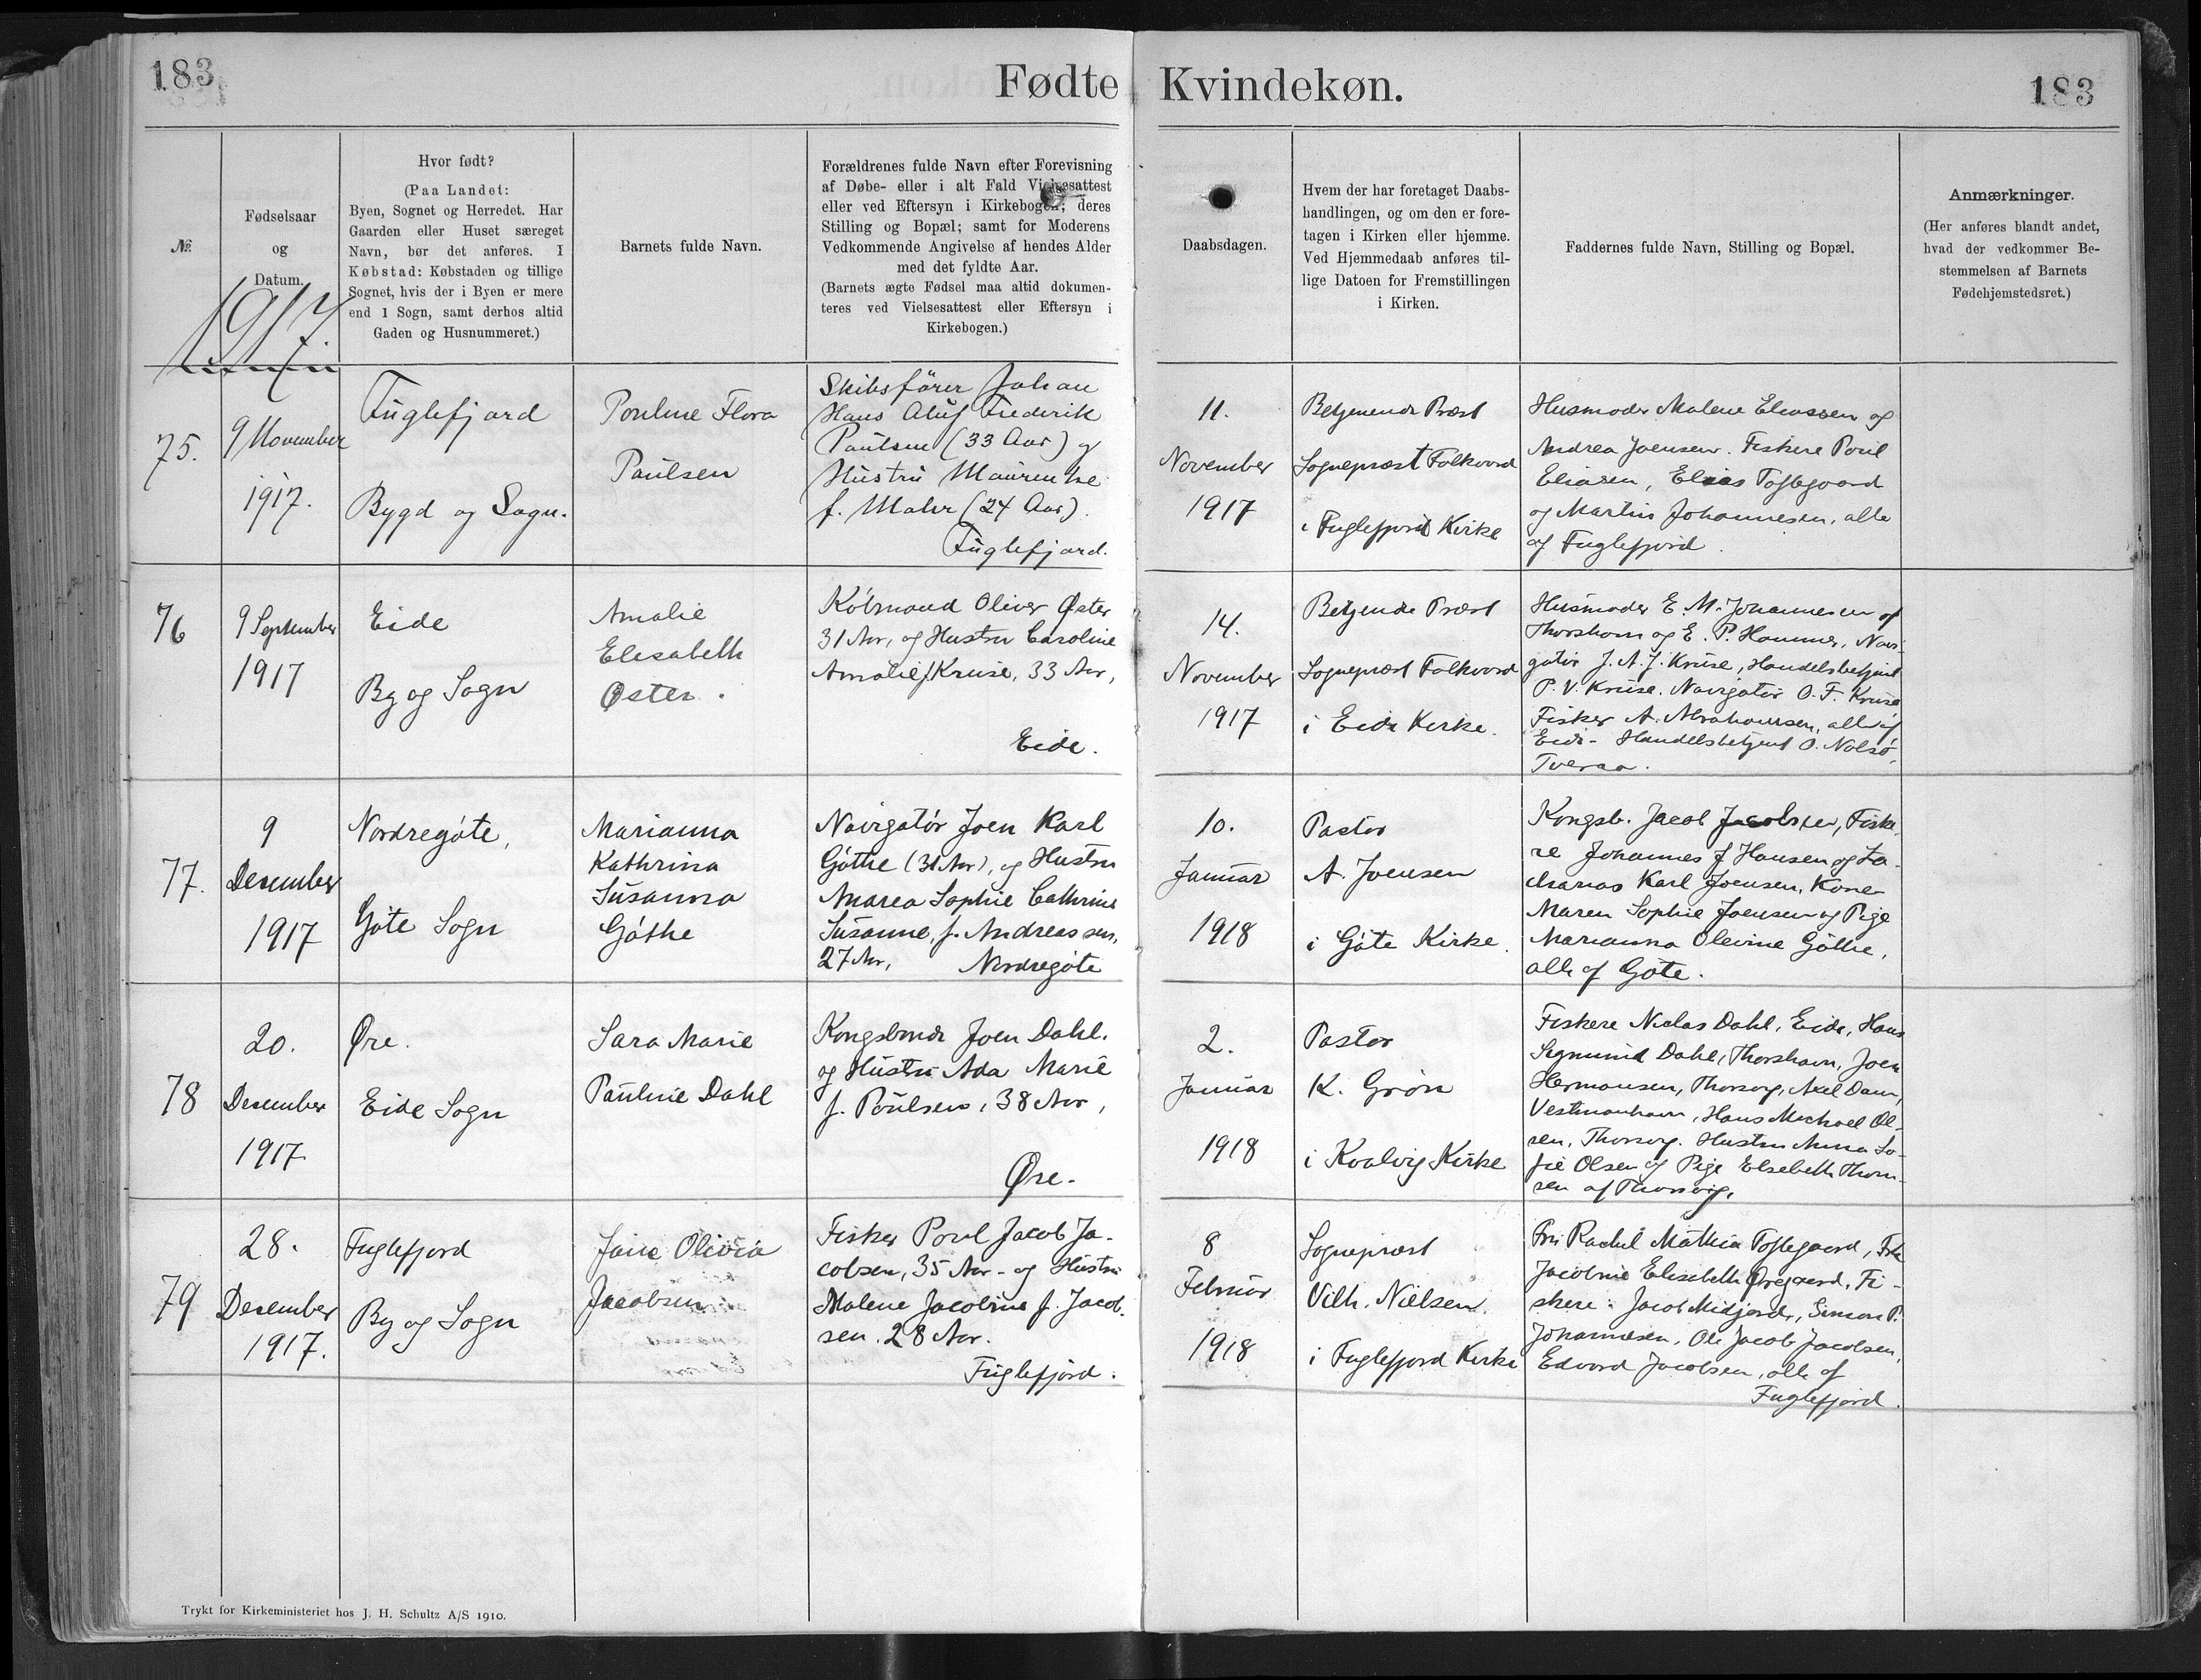 183
Fødte Kvindekøn.
183
№
Fødselsaar
og
Datum.
1917.
Hvor født?
(Paa Landet:
Byen, Sognet og Herredet. Har
Gaarden eller Huset særeget
Navn, bør det anføres. I
Købstad: Købstaden og tillige
Sognet, hvis der i Byen er mere
end 1 Sogn, samt derhos altid
Gaden og Husnummeret.)
Barnets fulde Navn.
Forældrenes fulde Navn efter Forevisning
af Døbe- eller i alt Fald Vielsesattest
eller ved Eftersyn i Kirkebogen; deres
Stilling og Bopæl; samt for Moderens
Vedkommende Angivelse af hendes Alder
med det fyldte Aar.
(Barnets ægte Fødsel maa altid dokumen-
teres ved Vielsesattest eller Eftersyn i
Kirkebogen.)
Daabsdagen.
Hvem der har foretaget Daabs-
handlingen, og om den er fore-
tagen i Kirken eller hjemme.
Ved Hjemmedaab anføres til-
lige Datoen for Fremstillingen
i Kirken.
Faddernes fulde Navn, Stilling og Bopæl.
Anmærkninger.
(Her anføres blandt andet,
hvad der vedkommer Be-
stemmelsen af Barnets
Fødehjemstedsret.)
75.
9 November
1917.
Fuglefjord
Bygd og Sogn.
Pouline Flora
Paulsen
Skibsfører Johan
Hans Oluf Frederik
Paulsen (33 Aar) og
Hustru Maurentse
f. Mohr (24 Aar).
Fuglefjord.
11.
November
1917
Betjenende Præst
Sognepræst Folkvord
i Fuglefjord Kirke
Husmoder Malene Eliassen og
Andrea Joensen. Fiskere Poul
Eliasen, Elias Toftegaard
og Martin Johannesen, alle
af Fuglefjord.
76
9 September
1917
Eide
By og Sogn
Amalie
Elesabeth
Øster.
Købmand Oliver Øster
31 Aar, og Hustru Caroline
Amalie f. Kruse, 33 Aar,
Eide.
14.
November
1917
Betjende Præst
Sognepræst Folkvord
i Eide Kirke.
Husmoder E. M. Johannesen af
Thorshavn og E. P. Hammer, Navi-
gatør J. A. J. Kruse, Handelsbetjent
P. V. Kruse, Navigatør O. F. Kruse
Fisker A. Abrahamsen, alle af
Eide - Handelsbetjent O. Nolsø,
Tveraa.
77.
9
December
1917
Nordregøte,
Gøte Sogn
Marianna
Kathrina
Susanna
Gøthe
Navigatør Joen Karl
Gøthe (31 Aar), og Hustru
Marea Sophie Cathrine
Susanne, f. Andreassen,
27 Aar, Nordregøte
10.
Januar
1918
Pastor
A. Joensen
i Gøte Kirke.
Kongsb. Jacob Jacobsen, Fiske-
re Johannes J Hansen og Za-
charias Karl Joensen, Kone
Maren Sophie Joensen og Pige
Marianna Olevine Gøthe,
alle af Gøte.
78
20.
December
1917
Øre.
Eide Sogn
Sara Marie
Pauline Dahl
Kongsbonde Joen Dahl.
og Hustru Ada Marie
f. Poulsen, 38 Aar,
Øre.
2.
Januar
1918
Pastor
K. Grøn
i Kvalvig Kirke
Fiskere Niclas Dahl, Eide, Hans
Sigmund Dahl, Thorshavn, Joen
Hermansen, Thorsvig, Axel Dam,
Vestmanhavn, Hans Michael Ol-
sen, Thorsvig. Hustru Anna So-
fie Olsen og Pige Elsebeth Thom-
sen af Thorsvig.
79
28.
December
1917.
Fuglefjord
By og Sogn
Olivia
Jacobsen
Fisker Poul Jacob Ja-
cobsen, 35 Aar - og Hustru
Malene Jacobine f. Jacob-
sen. 28 Aar.
Fuglefjord.
8
Februar
1918
Sognepræst
Vilh. Nielsen.
i Fuglefjord Kirke
Fru Rachel Mathea Toftegaard, Frk
Jacobine Elisabeth Øregaard, Fi-
skere: Jacob Midjord, Simon P.
Johannesen, Ole Jacob Jacobsen,
Edvard Jacobsen, alle af
Fuglefjord.
Trykt for Kirkeministeriet hos J. H. Schultz A/S 1910.